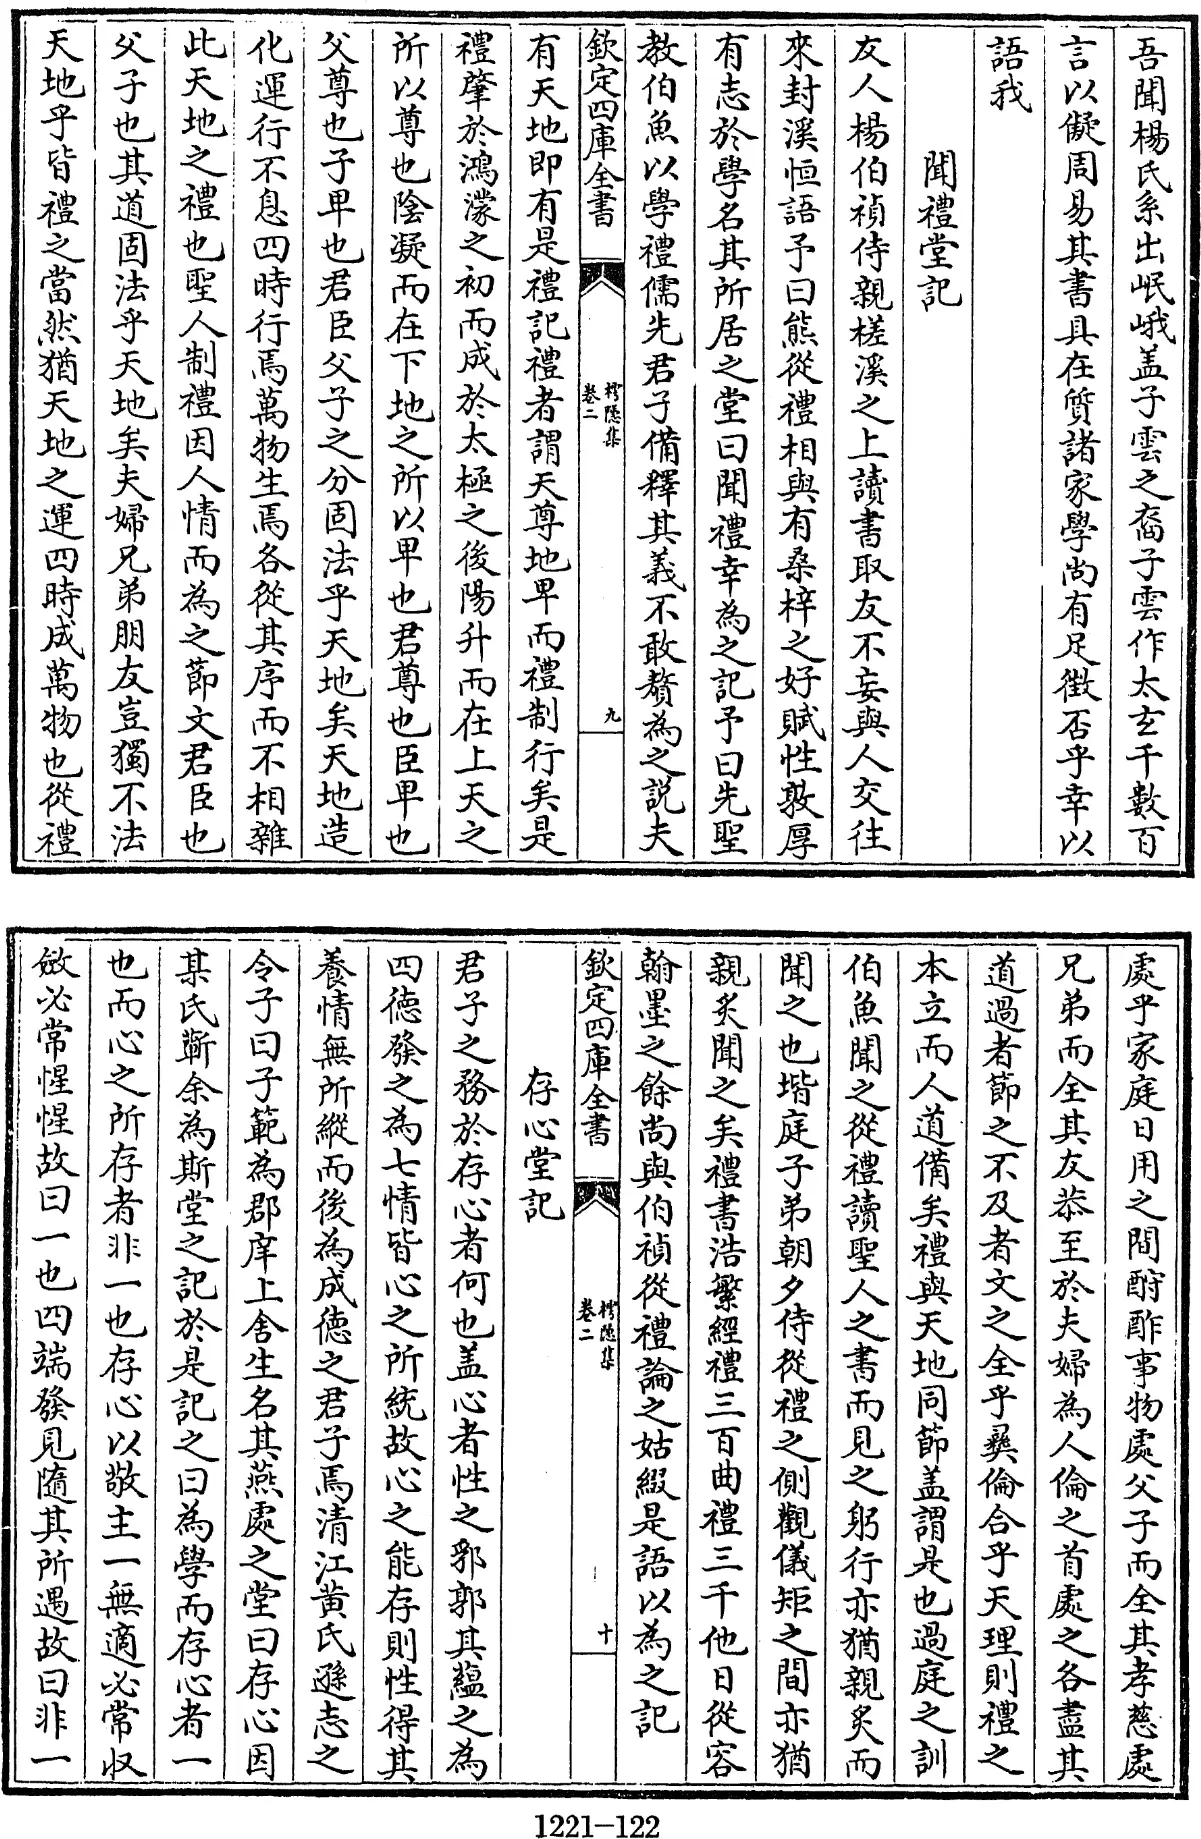 吾聞楊氏系出岷峨盖子雲之裔子雲作太玄千數百
言以儗周易其書具在質諸家學尚有足徴否乎幸以
語我
聞禮堂記
友人楊伯禎侍親槎溪之上讀書取友不妄與人交往
來封溪恒語予曰熊從禮相與有桑梓之好賦性敦厚
有志於學名其所居之堂曰聞禮幸為之記予曰先聖
教伯魚以學禮儒先君子備釋其義不敢贅為之説夫
欽定四庫全書
樗隠集
卷二
九
有天地即有是禮記禮者謂天尊地卑而禮制行矣是
禮肇於鴻濛之初而成於太極之後陽升而在上天之
所以尊也陰凝而在下地之所以卑也君尊也臣卑也
父尊也子卑也君臣父子之分固法乎天地矣天地造
化運行不息四時行焉萬物生焉各從其序而不相雜
此天地之禮也聖人制禮因人情而為之節文君臣也
父子也其道固法乎天地矣夫婦兄弟朋友豈獨不法
天地乎皆禮之當然猶天地之運四時成萬物也從禮
處乎家庭日用之間酧酢事物處父子而全其孝慈處
兄弟而全其友恭至於夫婦為人倫之首處之各盡其
道過者節之不及者文之全乎彛倫合乎天理則禮之
本立而人道備矣禮與天地同節盖謂是也過庭之訓
伯魚聞之從禮讀聖人之書而見之躬行亦猶親炙而
聞之也堦庭子弟朝夕侍從禮之側觀儀矩之間亦猶
親炙聞之矣禮書浩繁經禮三百曲禮三千他日從容
翰墨之餘尚與伯禎從禮論之姑綴是語以為之記
欽定四庫全書
樗隠集
卷二
十
存心堂記
君子之務於存心者何也盖心者性之郛郭其蘊之為
四徳發之為七情皆心之所統故心之能存則性得其
養情無所縱而後為成徳之君子焉清江黄氏遜志之
令子曰子範為郡庠上舍生名其燕處之堂曰存心因
某氏蘄余為斯堂之記於是記之曰為學而存心者一
也而心之所存者非一也存心以敬主一無適必常収
斂必常惺惺故曰一也四端發見隨其所遇故曰非一
1221-122